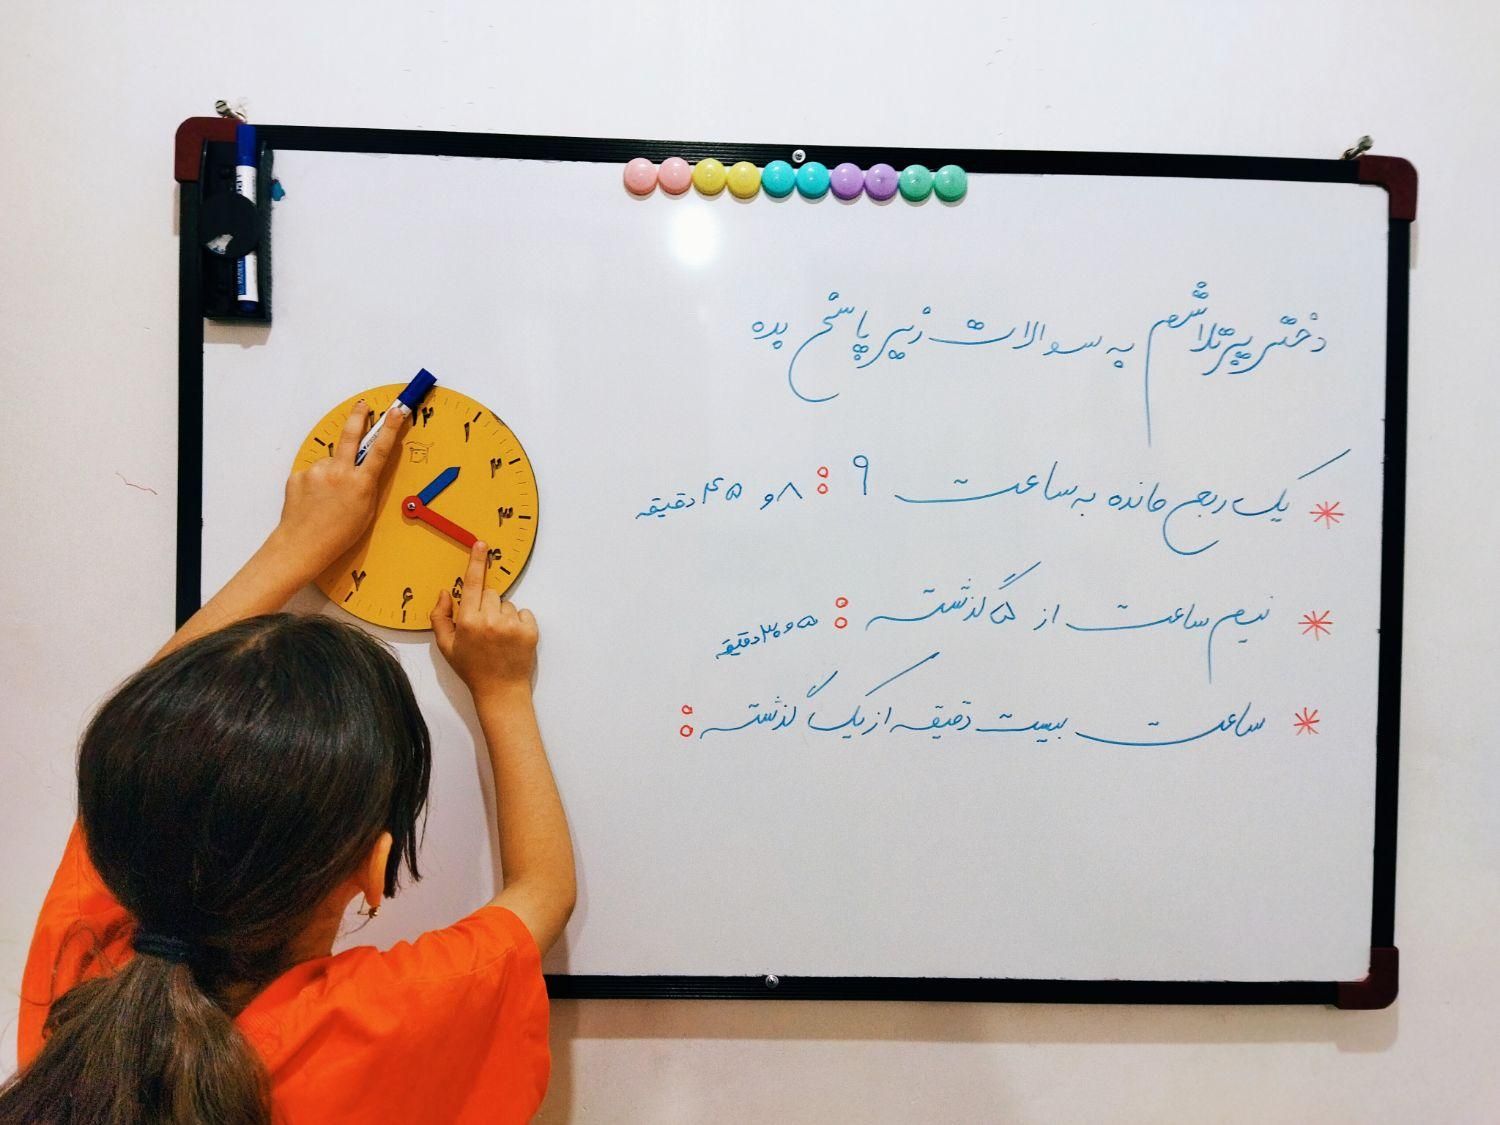 دختر پرتلاشم به سوالات زیر پاسخ بده
* یک ربع مانده به ساعت ۹ : ۸ و ۴۵ دقیقه
* نیم ساعت از ۵ گذشته : ۵ و ۳۰ دقیقه
* ساعت بیست دقیقه از یک گذشته :
۱۲
۱
۲
۳
۴
۵
۶
۷